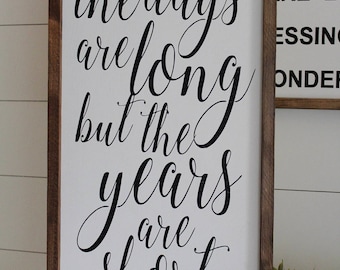 the days
are long
but the
years
are
short
ESSING
ONDER